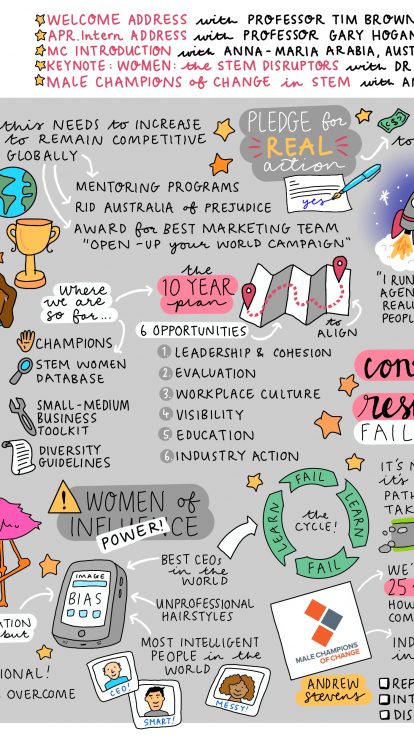 WELCOME ADDRESS with PROFESSOR TIM BROWN
APR.Intern ADDRESS with PROFESSOR GARY HOGAN
MC INTRODUCTION with ANNA-MARIA ARABIA, AUST
KEYNOTE: WOMEN: the STEM DISRUPTORS with DR
MALE CHAMPIONS of CHANGE in STEM with A
this NEEDS to INCREASE
to REMAIN COMPETITIVE
GLOBALLY
PLEDGE for
REAL
action
yes
to
MENTORING PROGRAMS
RID AUSTRALIA of PREJUDICE
AWARD for BEST MARKETING TEAM
"OPEN-UP your WORLD CAMPAIGN"
"I RUN
AGEN
REAL
PEOPL
Where
we are
so far...
CHAMPIONS
STEM WOMEN
DATABASE
SMALL-MEDIUM
BUSINESS
TOOLKIT
DIVERSITY
GUIDELINES
the
10 YEAR
plan
to
ALIGN
6 OPPORTUNITIES
1. LEADERSHIP & COHESION
2. EVALUATION
3. WORKPLACE CULTURE
4. VISIBILITY
5. EDUCATION
6. INDUSTRY ACTION
con
res
FAIL
WOMEN of
INFLUENCE
POWER!
IMAGE
BIAS
BEST CEOs
in the
WORLD
UNPROFESSIONAL
HAIRSTYLES
MOST INTELLIGENT
PEOPLE in the
WORLD
CEO!
SMART!
MESSY!
ATION
but
IONAL!
OVERCOME
FAIL
LEARN
FAIL
LEARN
the
CYCLE!
IT'S N
it's
PATH
TAK
WE'
25
HOU
COM
IND
in
MALE CHAMPIONS
OF CHANGE
ANDREW
Stevens
REP
INT
DIS